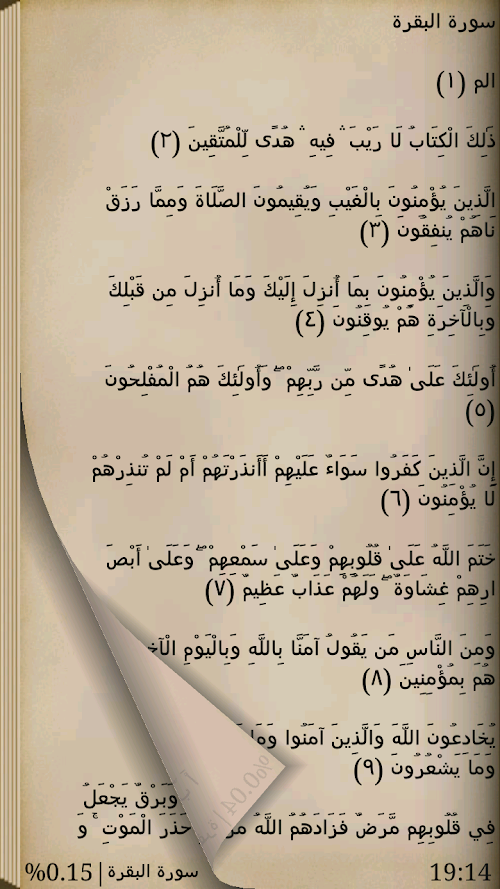 سورة البقرة
الم (١)
ذَٰلِكَ الْكِتَابُ لَا رَيْبَ ۛ فِيهِ ۛ هُدًى لِّلْمُتَّقِينَ (٢)
الَّذِينَ يُؤْمِنُونَ بِالْغَيْبِ وَيُقِيمُونَ الصَّلَاةَ وَمِمَّا رَزَقْ
نَاهُمْ يُنفِقُونَ (٣)
وَالَّذِينَ يُؤْمِنُونَ بِمَا أُنزِلَ إِلَيْكَ وَمَا أُنزِلَ مِن قَبْلِكَ
وَبِالْآخِرَةِ هُمْ يُوقِنُونَ (٤)
أُولَٰئِكَ عَلَىٰ هُدًى مِّن رَّبِّهِمْ ۖ وَأُولَٰئِكَ هُمُ الْمُفْلِحُونَ
(٥)
إِنَّ الَّذِينَ كَفَرُوا سَوَاءٌ عَلَيْهِمْ أَأَنذَرْتَهُمْ أَمْ لَمْ تُنذِرْهُمْ
لَا يُؤْمِنُونَ (٦)
خَتَمَ اللَّهُ عَلَىٰ قُلُوبِهِمْ وَعَلَىٰ سَمْعِهِمْ ۖ وَعَلَىٰ أَبْصَ
ارِهِمْ غِشَاوَةٌ ۖ وَلَهُمْ عَذَابٌ عَظِيمٌ (٧)
وَمِنَ النَّاسِ مَن يَقُولُ آمَنَّا بِاللَّهِ وَبِالْيَوْمِ
هُم بِمُؤْمِنِينَ (٨)
يُخَادِعُونَ اللَّهَ وَالَّذِينَ آمَنُوا
وَمَا يَشْعُرُونَ (٩)
وَبَرْقٌ يَجْعَلُ
فِي قُلُوبِهِم مَّرَضٌ فَزَادَهُمُ اللَّهُ
حَذَرَ الْمَوْتِ ۚ وَ
19:14
سورة البقرة | %0.15